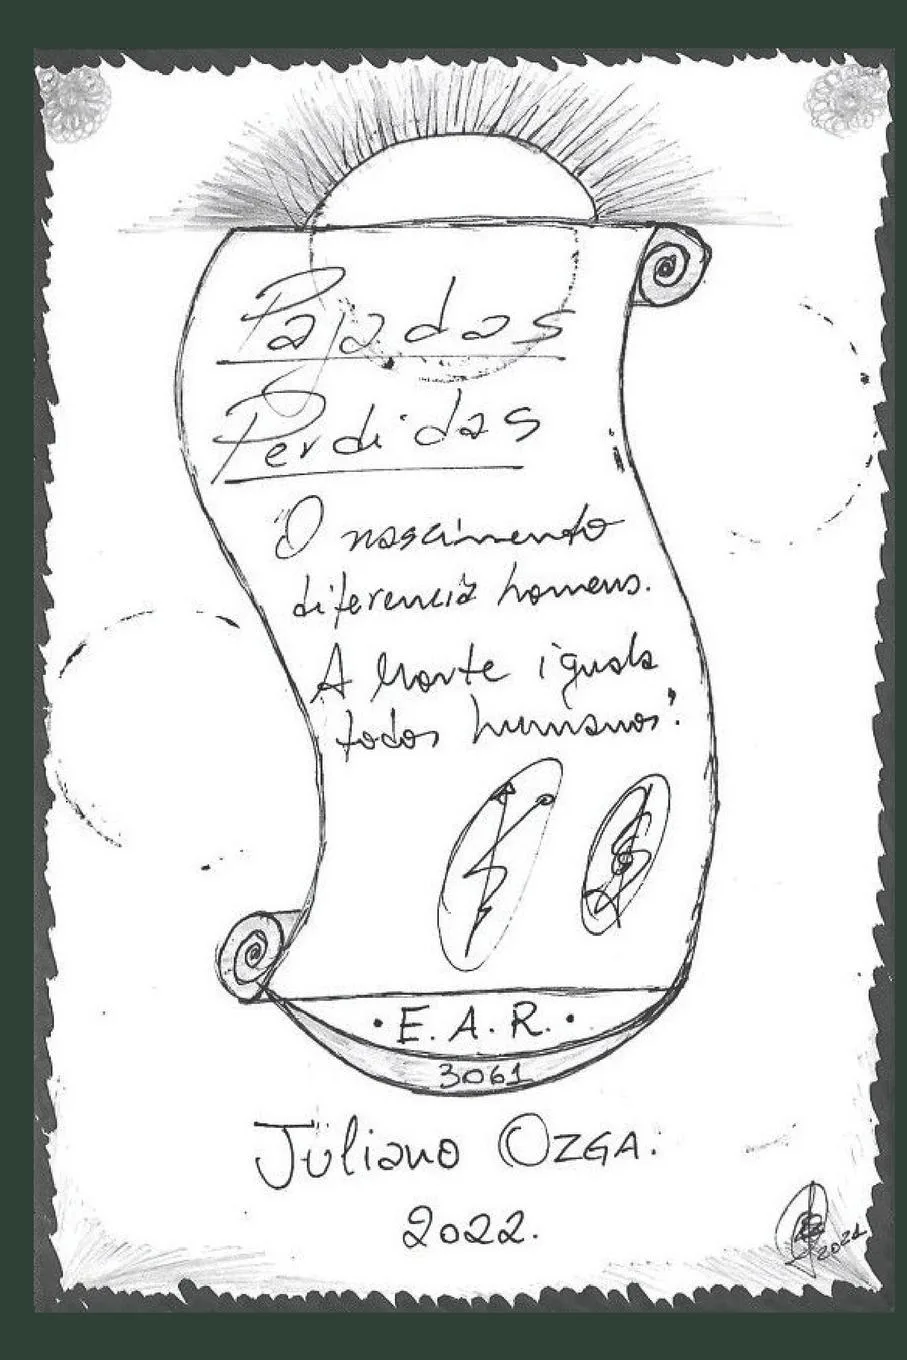 Pajadas
Perdidas
"O nascimento
diferencia homens.
A Morte iguala
todos humanos".
• E. A. R. •
3061
Juliano OZGA.
2022.
2021